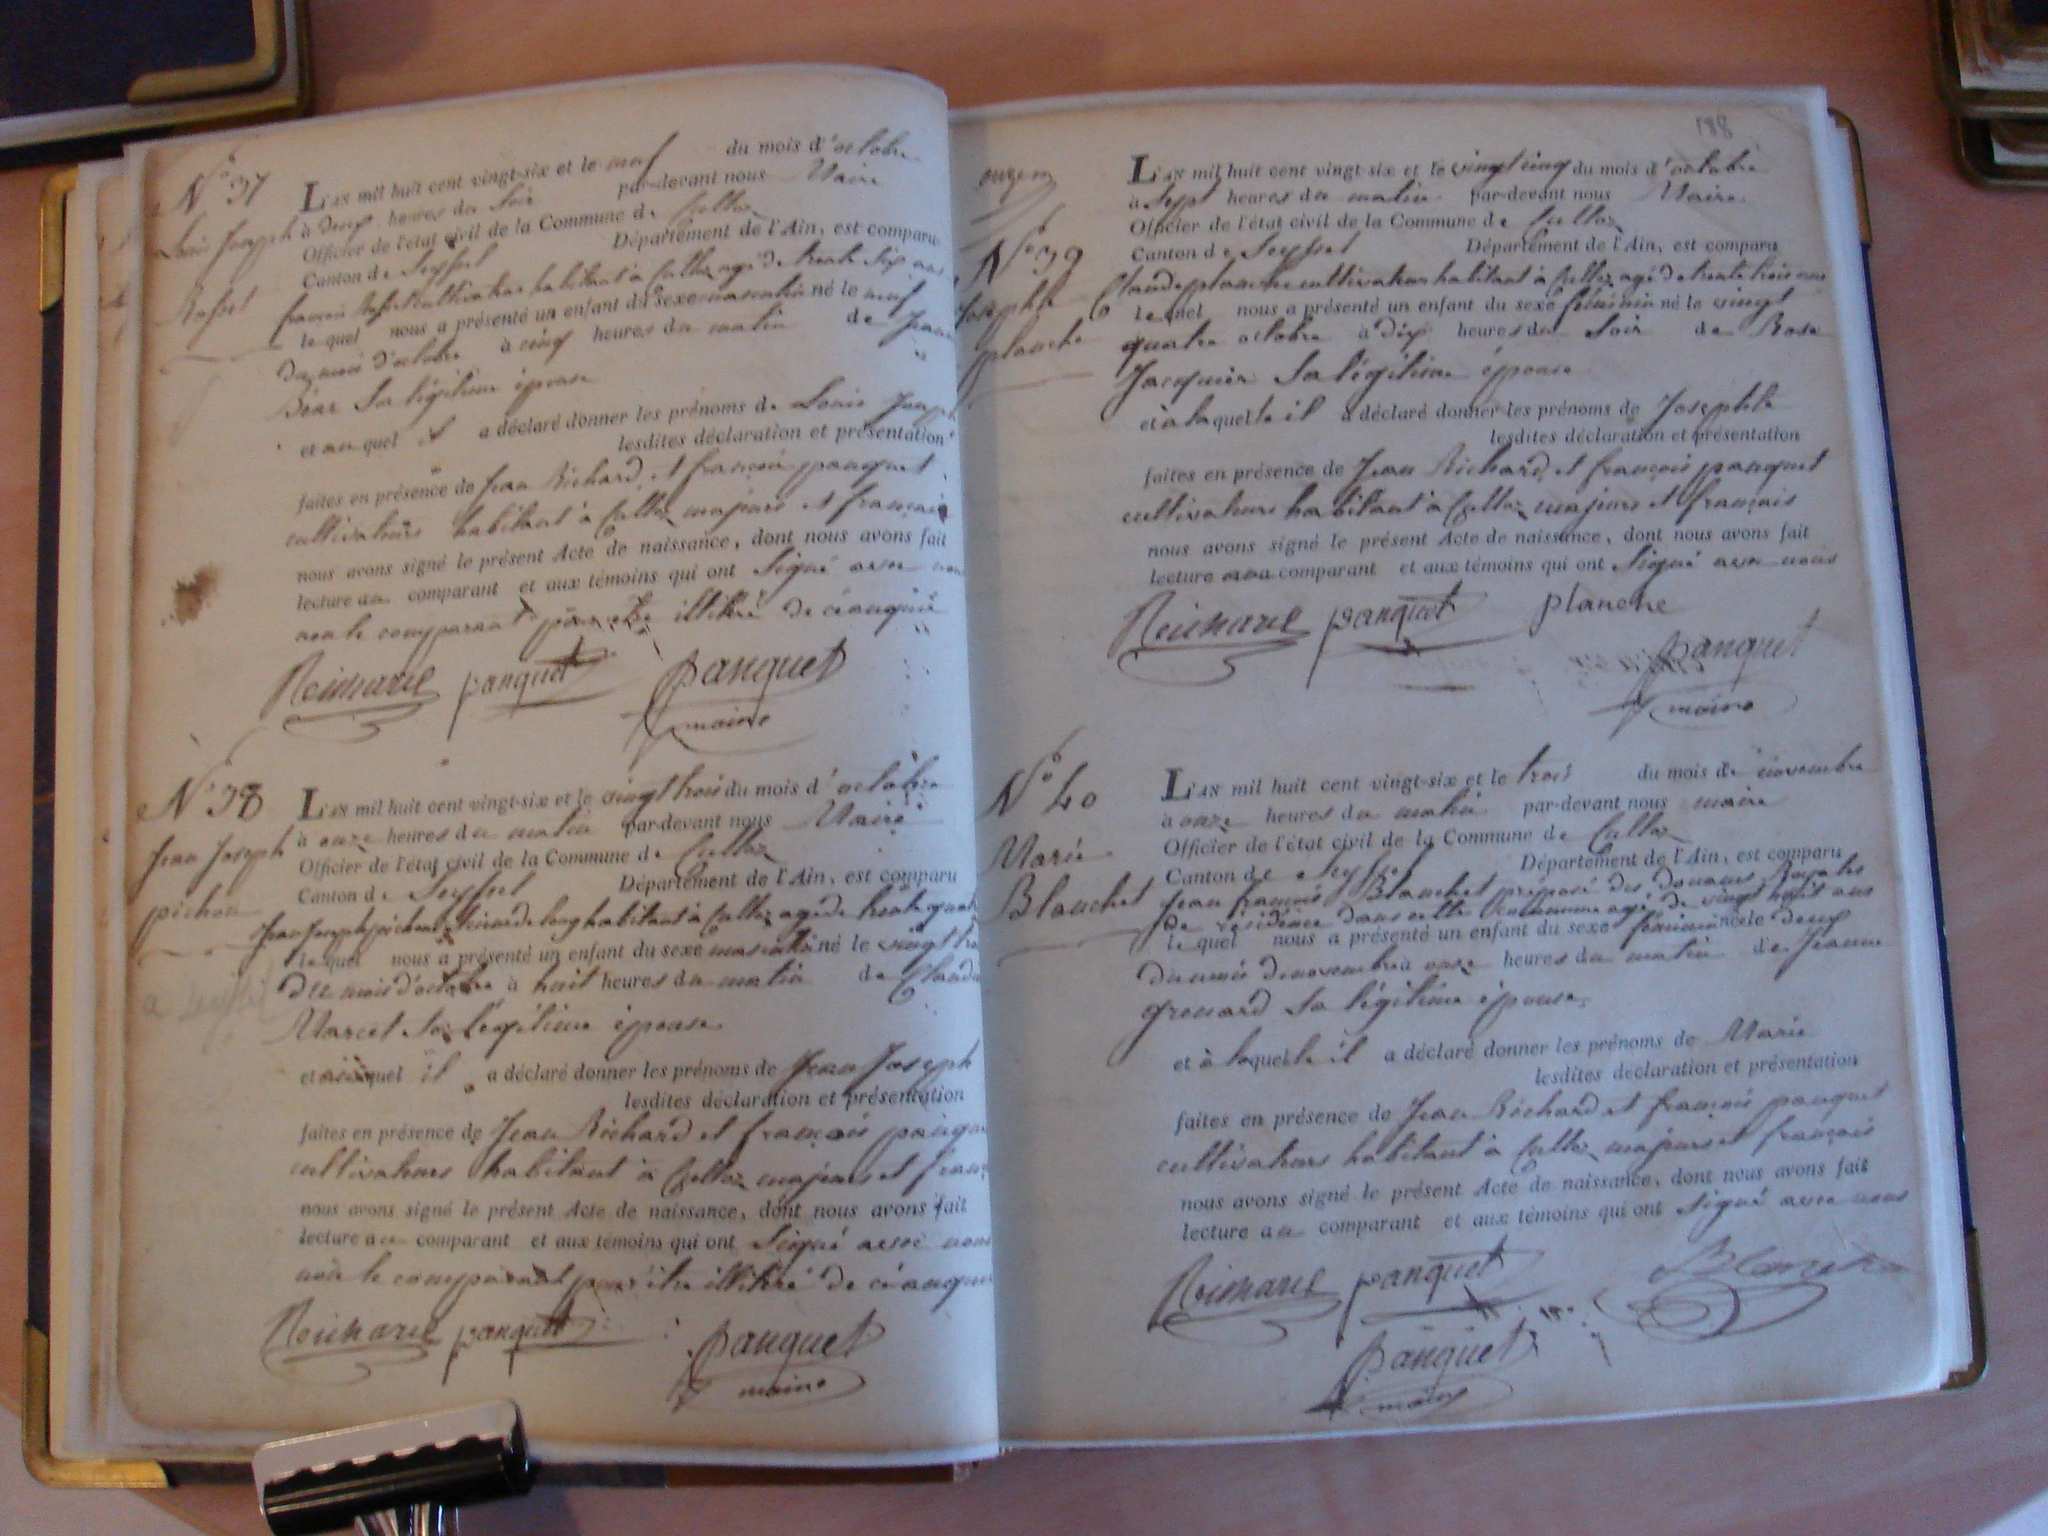 N° 37
Louis Joseph
L'AN mil huit cent vingt-six et le neuf du mois d'octobre
à heures du Soir par-devant nous Maire
Officier de l'état civil de la Commune de Culloz
Canton de Seyssel Département de l'Ain, est comparu
françois cultivateur habitant à Culloz agé de trente six ans
lequel nous a présenté un enfant du sexe masculin né le neuf
du mois d'octobre à cinq heures du matin de Jeanne
Béar Sa légitime épouse
et au quel il a déclaré donner les prénoms de Louis Joseph
lesdites déclaration et présentation
faites en présence de Jean Richard et françois panquet
cultivateurs habitant à Culloz majeurs et français
nous avons signé le présent Acte de naissance, dont nous avons fait
lecture au comparant et aux témoins qui ont Signé avec nous
non le comparant pour être illitéré de ce enquis
panquet panquet
maire
N° 38
Jean Joseph
pichon
L'AN mil huit cent vingt-six et le vingt trois du mois d'octobre
à onze heures du matin par-devant nous Maire
Officier de l'état civil de la Commune de Culloz
Canton de Seyssel Département de l'Ain, est comparu
Jean Joseph pichon habitant à Culloz agé de trente quatre
lequel nous a présenté un enfant du sexe masculin né le vingt trois
du mois d'octobre à huit heures du matin de Claudine
Marcel Sa légitime épouse
et auquel il a déclaré donner les prénoms de Jean Joseph
lesdites déclaration et présentation
faites en présence de Jean Richard et françois panquet
cultivateurs habitant à Culloz majeurs et français
nous avons signé le présent Acte de naissance, dont nous avons fait
lecture au comparant et aux témoins qui ont Signé avec nous
non le comparant pour être illitéré de ce enquis
panquet panquet
maire
188
N° 39
Josephte
planche
L'AN mil huit cent vingt-six et le vingt cinq du mois d'octobre
à Sept heures du matin par-devant nous Maire
Officier de l'état civil de la Commune de Culloz
Canton de Seyssel Département de l'Ain, est comparu
Claude planche cultivateur habitant à Culloz agé de trente trois ans
lequel nous a présenté un enfant du sexe féminin né le vingt
quatre octobre à dix heures du Soir de Rose
Jacquier Sa légitime épouse
et à laquelle il a déclaré donner les prénoms de Josephte
lesdites déclaration et présentation
faites en présence de Jean Richard et françois panquet
cultivateurs habitant à Culloz majeurs et français
nous avons signé le présent Acte de naissance, dont nous avons fait
lecture au comparant et aux témoins qui ont Signé avec nous
panquet planche
panquet
maire
N° 40
Marie
Blanchet
L'AN mil huit cent vingt-six et le trois du mois de novembre
à onze heures du matin par-devant nous maire
Officier de l'état civil de la Commune de Culloz
Canton de Seyssel Département de l'Ain, est comparu
Jean françois Blanchet préposé des douanes Royales
de résidence dans cette Commune agé de vingt huit ans
lequel nous a présenté un enfant du sexe féminin né le deux
du mois de novembre à onze heures du matin de Jeanne
grenard Sa légitime épouse
et à laquelle il a déclaré donner les prénoms de Marie
lesdites déclaration et présentation
faites en présence de Jean Richard et françois panquet
cultivateurs habitant à Culloz majeurs et français
nous avons signé le présent Acte de naissance, dont nous avons fait
lecture au comparant et aux témoins qui ont Signé avec nous
panquet
panquet
maire